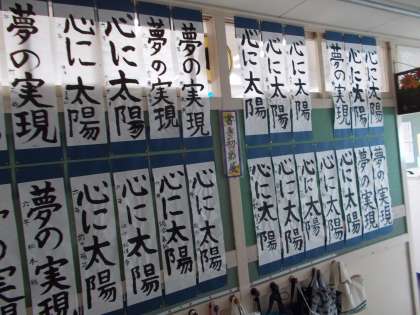 夢の実現
心に太陽
心に太陽
夢の実現
夢の実現
の実現
夢の実現
心に太陽
心に太陽
心に太陽
心に太陽
書き初め
心に太陽
心に太陽
心に太陽
夢の実現
心に太陽
心に太陽
心に太陽
心に太陽
心に太陽
心に太陽
心に太陽
夢の実現
夢の実現